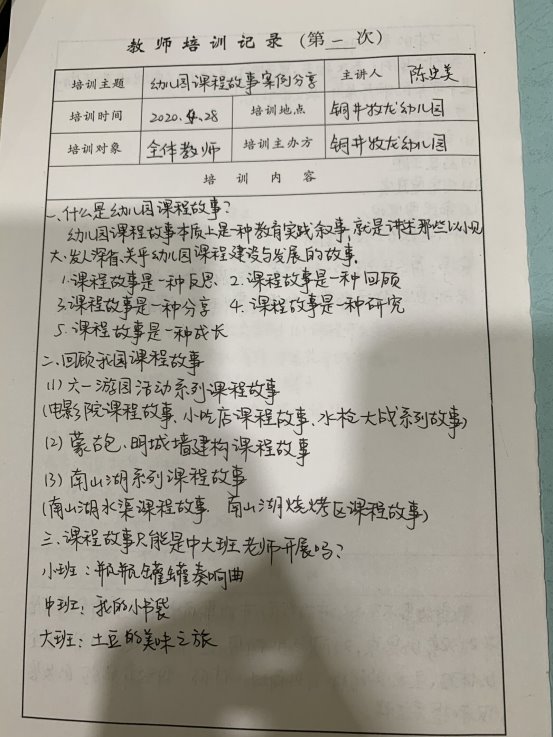 教师培训记录（第一次）
培训主题 幼儿园课程故事案例分享 主讲人 陈史美
培训时间 2020.4.28 培训地点 铜井牧龙幼儿园
培训对象 全体教师 培训主办方 铜井牧龙幼儿园
培训内容
一、什么是幼儿园课程故事？
幼儿园课程故事本质上是一种教育实践叙事，就是讲述那些以小见
大、发人深省、关乎幼儿园课程建设与发展的故事。
1.课程故事是一种反思、2.课程故事是一种回顾
3.课程故事是一种分享 4.课程故事是一种研究
5.课程故事是一种成长
二、回顾我园课程故事
(1) 六一游园活动系列课程故事
(电影院课程故事、小吃店课程故事、水枪大战系列故事)
(2) 蒙古包、明城墙建构课程故事
(3) 南山湖系列课程故事
(南山湖水渠课程故事、南山湖烧烤区课程故事)
三、课程故事只能是中大班老师开展吗？
小班：瓶瓶罐罐奏响曲
中班：我的小书袋
大班：土豆的美味之旅